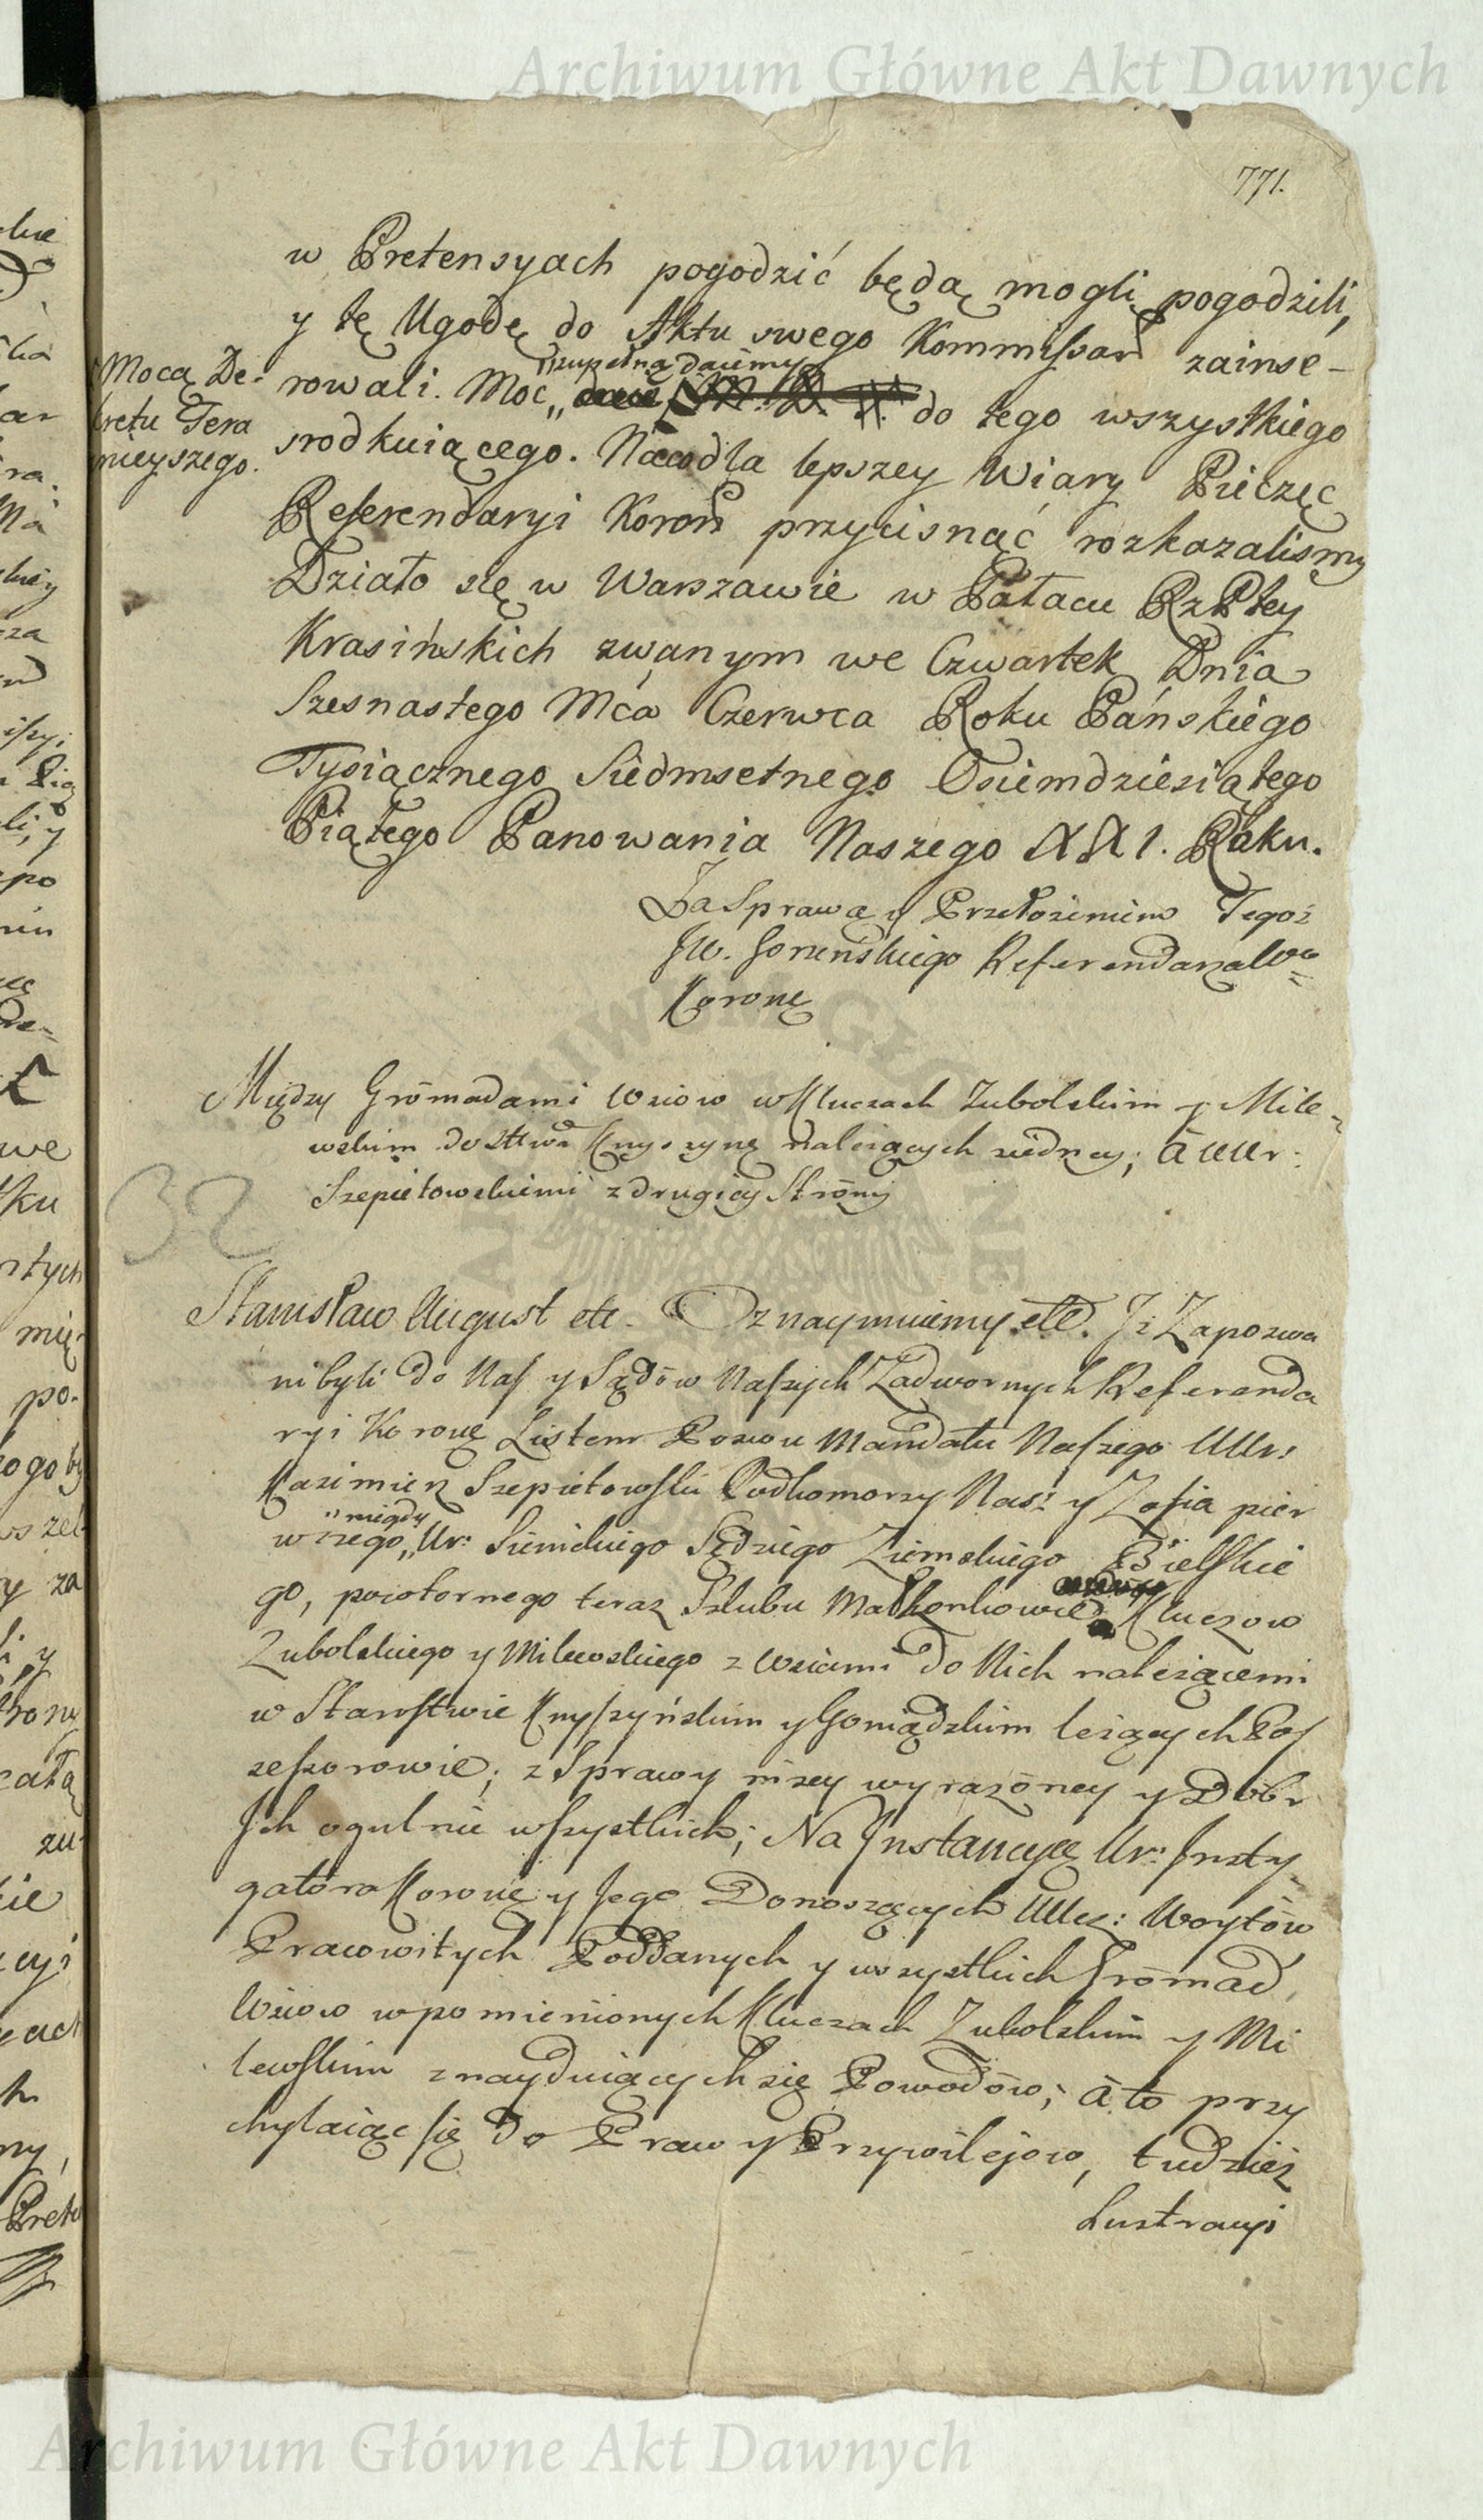 Archiwum Główne Akt Dawnych
771.
w Pretensyach pogodzić będą mogli, pogodzili,
y tę Ugodę do Aktu swego Kommissar zainse-
rowali. Moc zupełną daiemy do tego wszystkiego
Mocą De-
kretu Tera
nieyszego.
srodkuiącego. Na co dla lepszey Wiary Pieczęć
Referendaryi Koron przycisnąć rozkazalismy
Działo się w Warszawie w Pałacu RzPltey
Krasińskich zwanym we Czwartek Dnia
Szesnastego Mca Czerwca Roku Pańskiego
Tysiącznego Siedmsetnego Osiemdziesiątego
Piątego Panowania Naszego XXI. Roku.
Za Sprawą y Przełożeniem Tegoż
JW. Gorzeńskiego Referendarza Wo
Koronę
Między Grómadami Wsiow w Kluczach Zubolskim y Mile-
wskim do Sttwa Knyszynę należących z iedney; à UUr:
Szepietowskiemi z drugiey Stróny
32
Stanisław August etc. Oznaymuiemy etc. Iż Zapozwa
ni byli do Nas y Sądów Naszych Zadwornych Referenda
ryi Koronę Listem Pozwu Mandatu Naszego UUr:
Kazimierz Szepietowski Podkomorzy Nasz y Zofia pier
wszego „niegdy” Ur: Siemickiego Sędziego Ziemskiego Bielskie
go, powtornego teraz Szlubu Małżonkowie, Kluczow
Zubolskiego y Milewskiego z Wsiami do Nich należącemi
w Starostwie Knyszyńskim y Goniądzkim leżących Pos
sessorowie; z Sprawy niżey wyrażóney y Dóbr
Ich ogulnie wszystkich; Na Instancyę Ur: Insty-
gatora Koronę y Jego Donoszących UUcz: Woytów
Pracowitych Poddanych y wszystkich Grómad,
Wsiow w pomienionych Kluczach Zubolskim y Mi
lewskim znayduiących się Powodów; à to przy
chylaiąc się do Praw y Przywilejow, tudzież
Lustracyi
Archiwum Główne Akt Dawnych